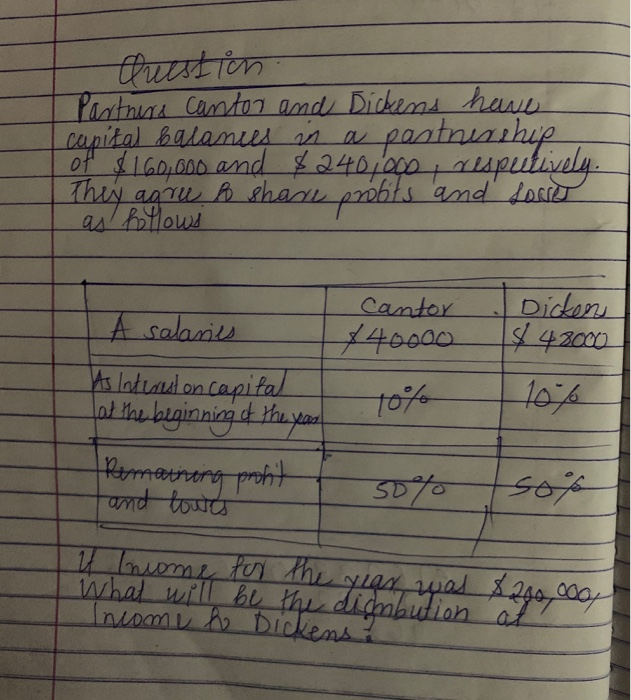 Question
Partners Cantor and Dickens have
capital balances in a partnership
of $160,000 and $240,000, respectively.
They agree to share profits and losses
as follows
Cantor Dickens
A salaries $40000 $48000
As Interest on capital
at the beginning of the year 10% 10%
Remaining profit
and losses 50% 50%
If Income for the year was
What will be the distribution of
Income to Dickens?